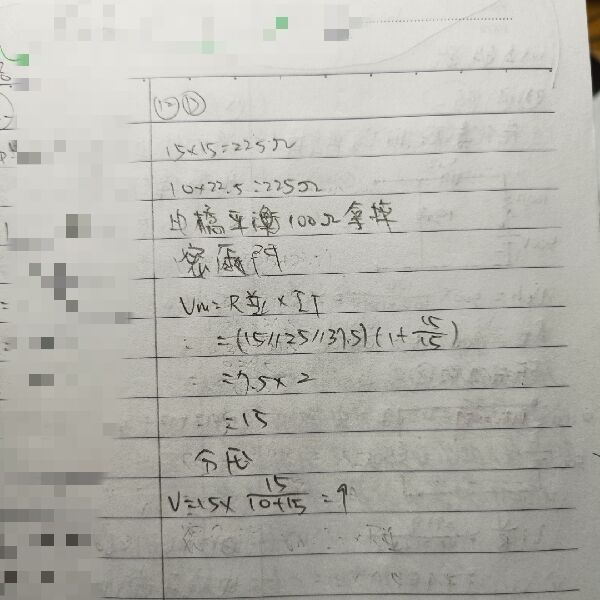 ⑫ ⑬
15×15=225Ω
10×22.5=225Ω
由橋平衡100Ω拿掉
密爾門
Vm=R並×IT
=(15//25//37.5)(1+15/15)
=7.5×2
=15
分壓
V=15×15/(10+15)=9